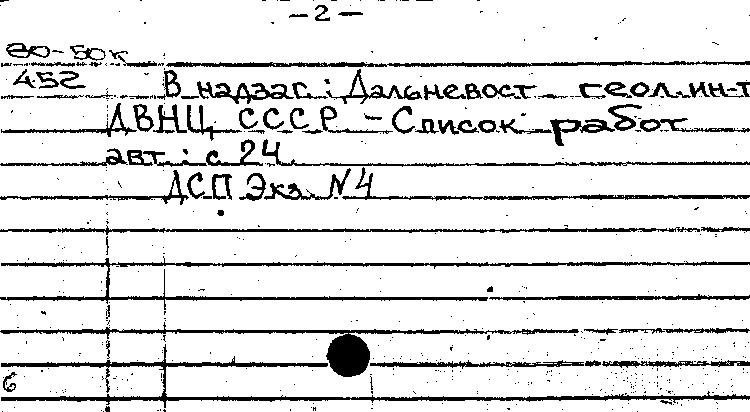 – 2 –
80-50к
452
В надзаг.: Дальневост. геол. ин-т
ДВНЦ СССР. – Список работ
авт.: с. 24.
ДСП Экз. N4
6